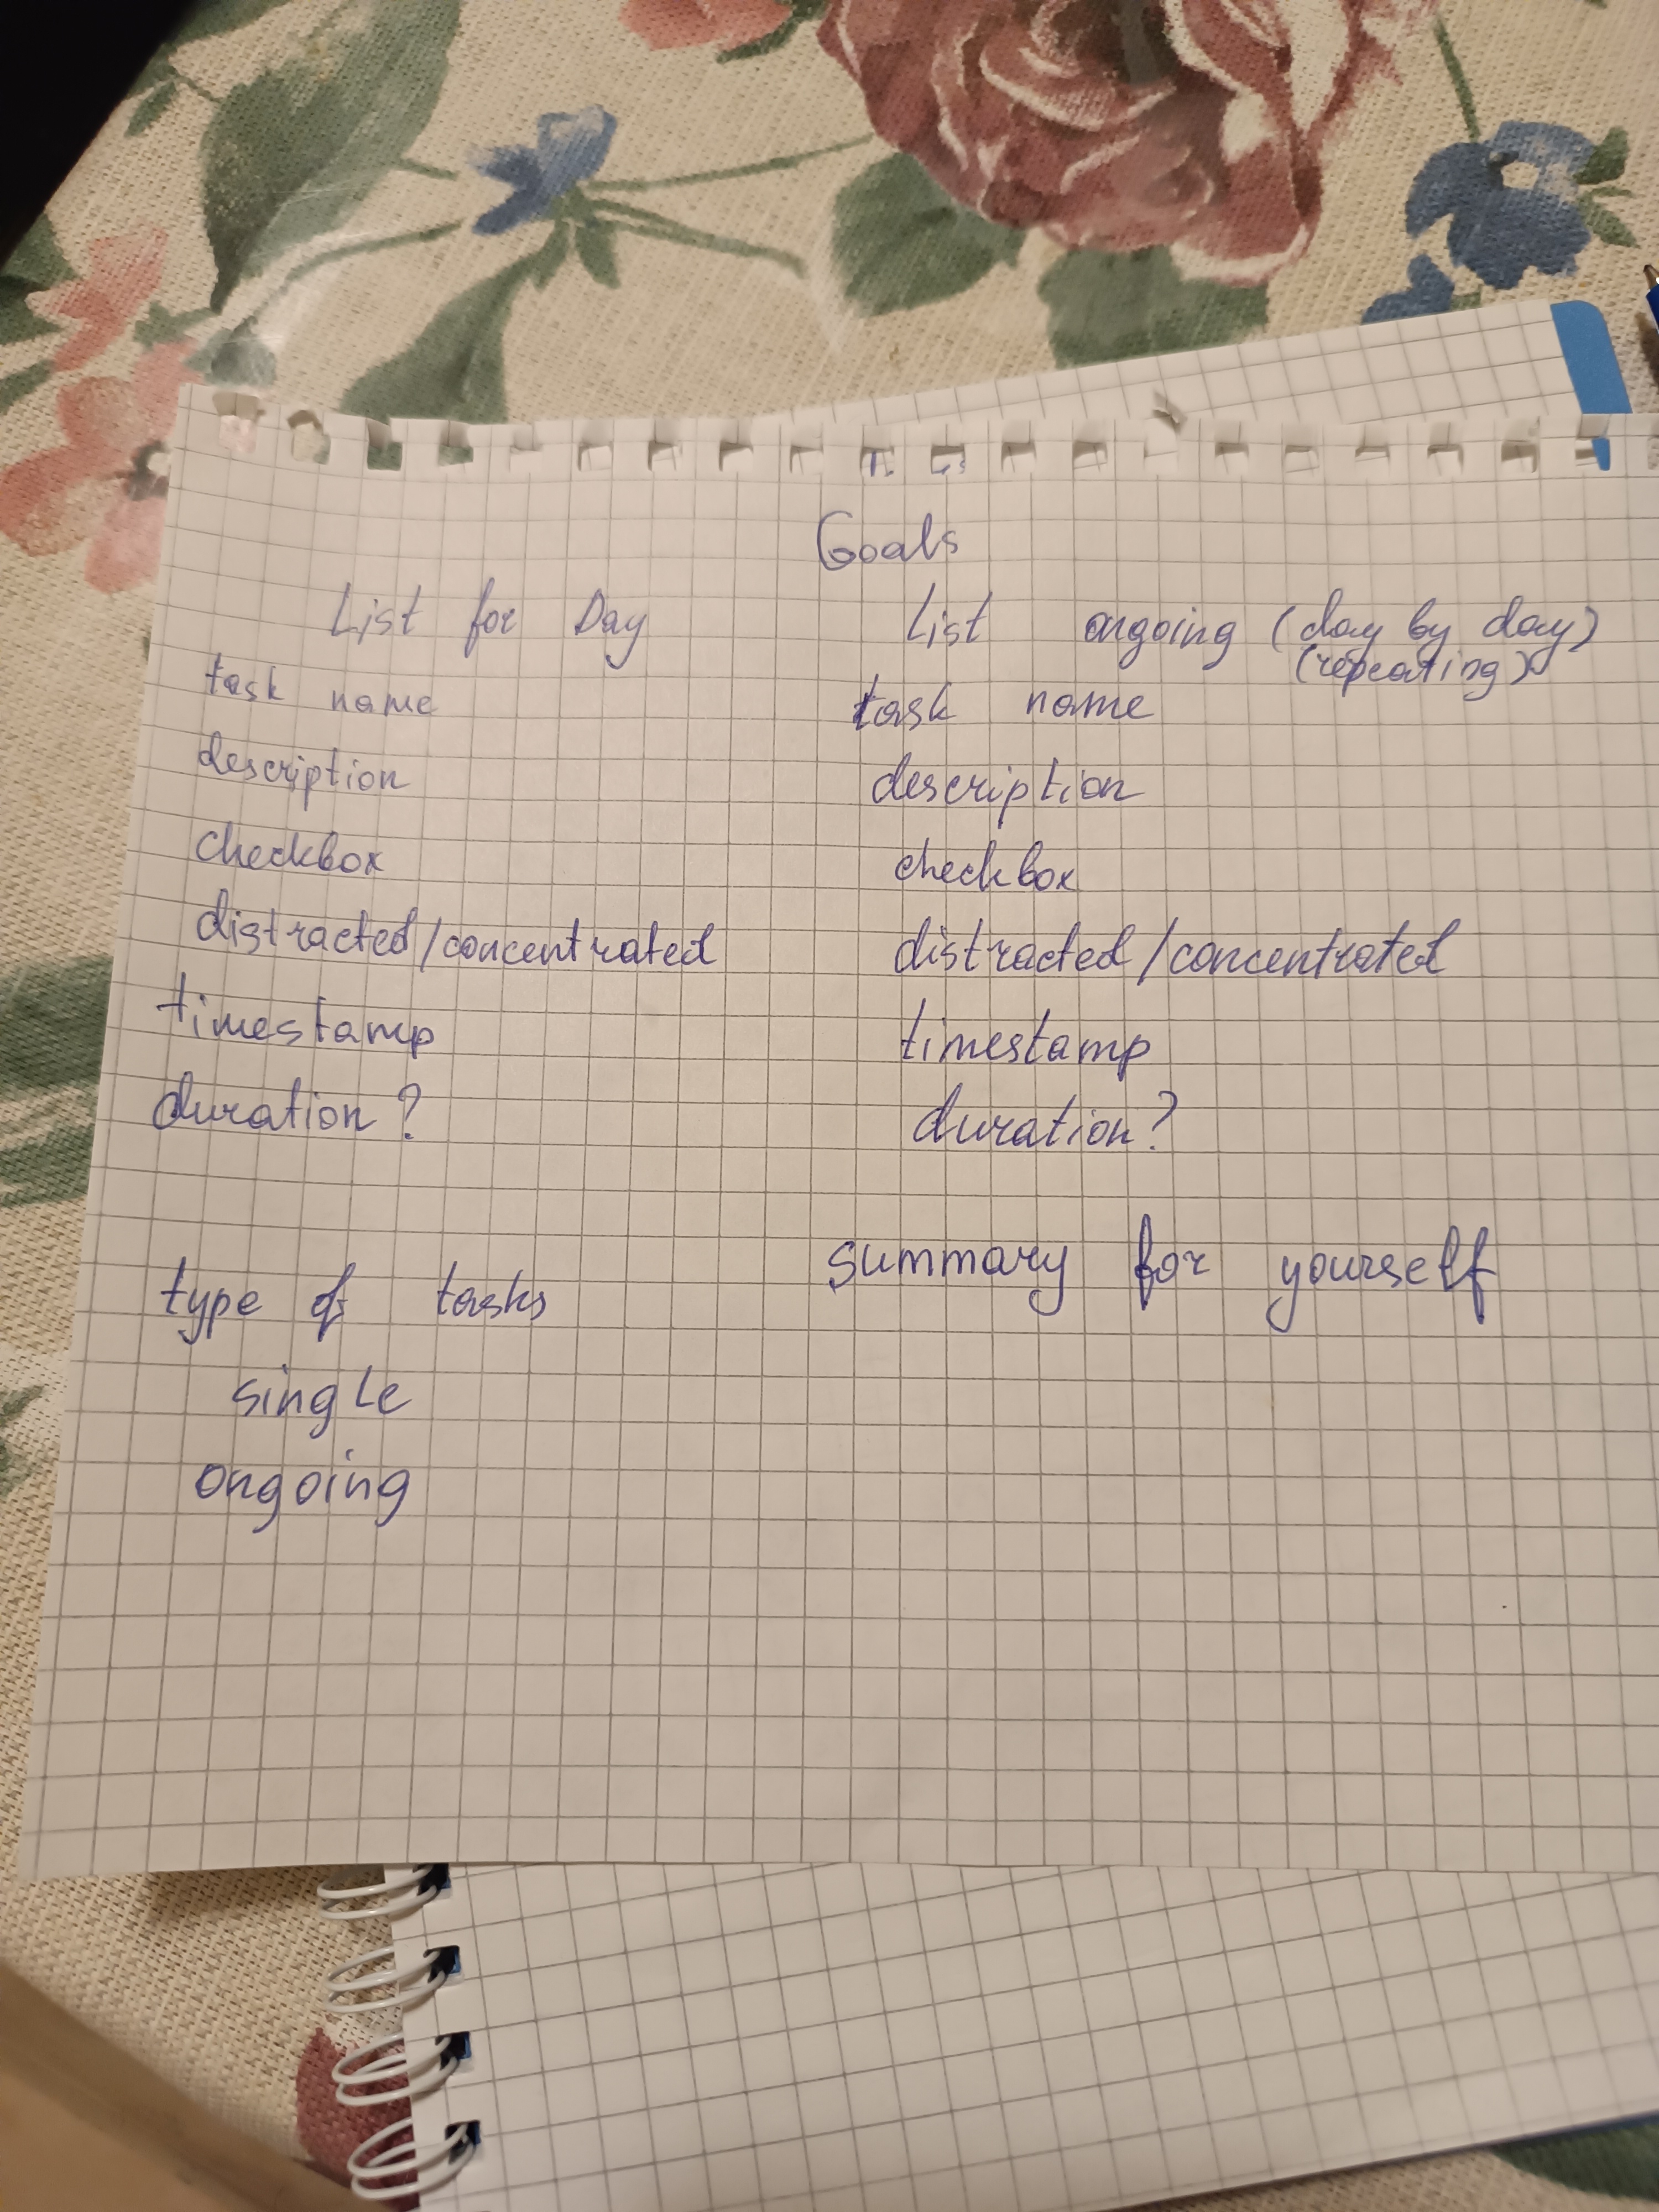 Goals
List for Day
task name
description
checkbox
distracted/concentrated
timestamp
duration?
List ongoing (day by day)
(repeating)
task name
description
checkbox
distracted/concentrated
timestamp
duration?
type of tasks
single
ongoing
summary for yourself